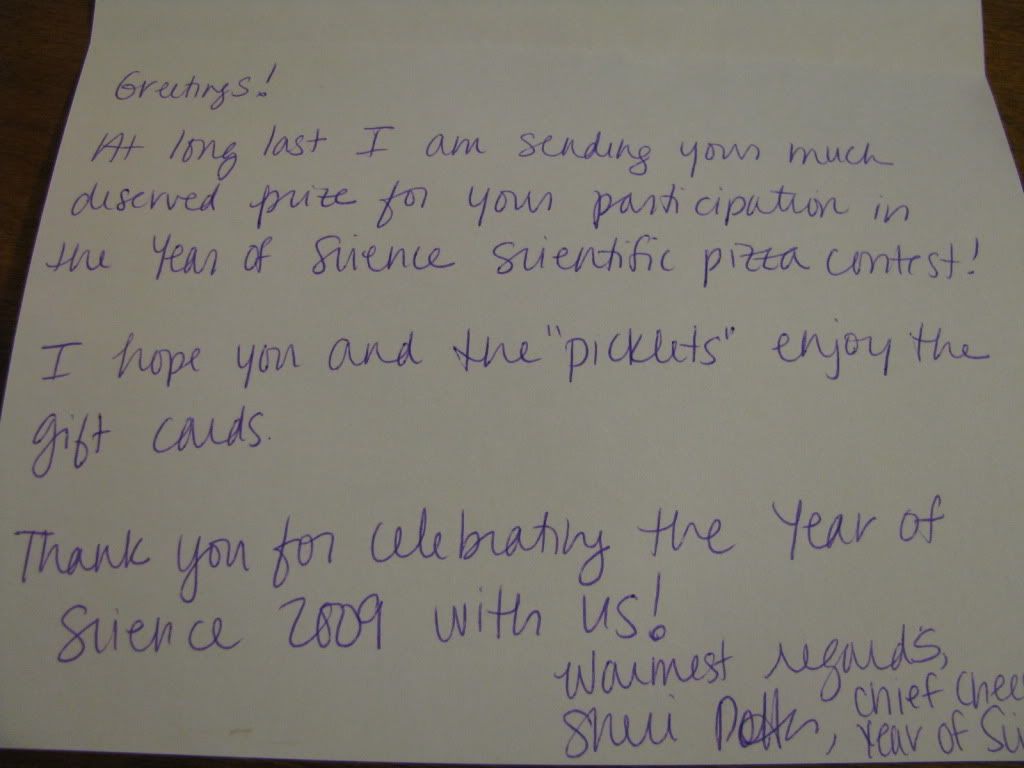 Greetings!
At long last I am sending your much
deserved prize for your participation in
the Year of Science Scientific pizza contest!
I hope you and the "picklets" enjoy the
gift cards.
Thank you for celebrating the Year of
Science 2009 with us!
Warmest regards,
Sheri
Chief Chee
Year of Sci